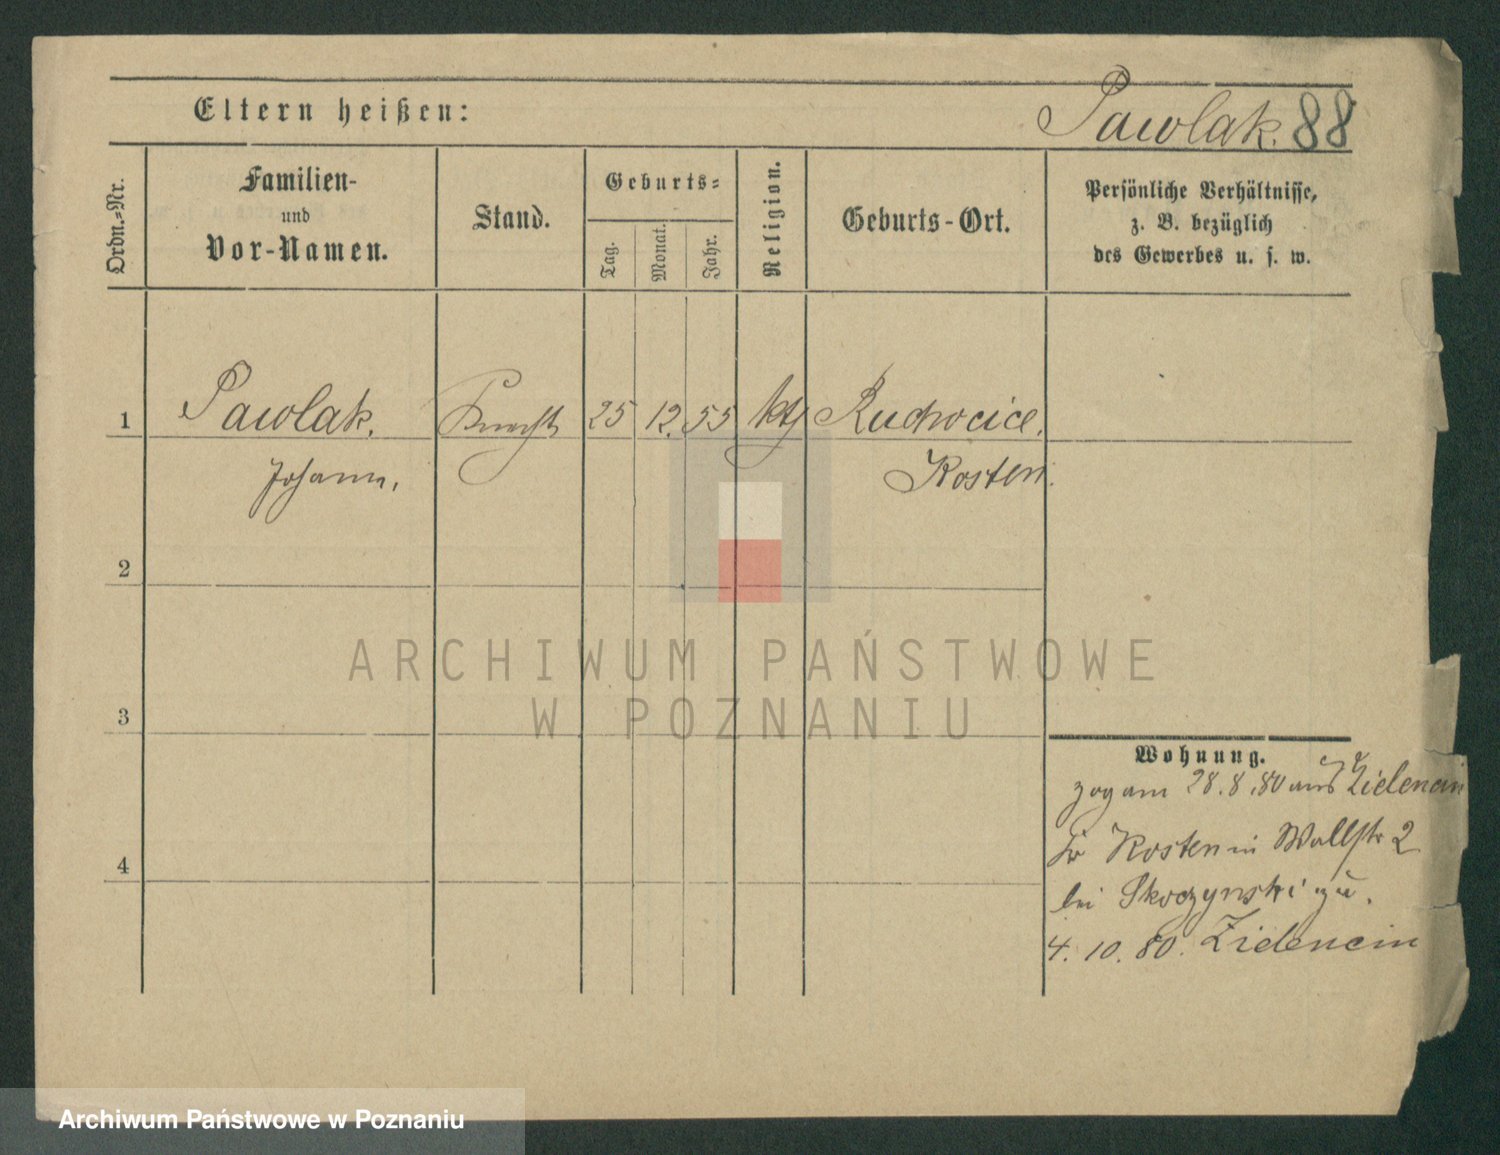 Eltern heißen:
Pawlak. 88
Ordn.-Nr.
Familien-
und
Vor-Namen.
Stand.
Geburts-
Tag.
Monat.
Jahr.
Religion.
Geburts-Ort.
Persönliche Verhältnisse,
z. B. bezüglich
des Gewerbes u. s. w.
1 Pawlak, Knecht 25 12. 55 kth Ruchocice,
Johann, Kosten.
2
3
4
ARCHIWUM PAŃSTWOWE
W POZNANIU
Wohnung.
zog am 28.8.80 aus Zielencin
Kr Kosten in Wallstr 2
bei Skoczynski zu.
4. 10. 80. Zielencin
Archiwum Państwowe w Poznaniu